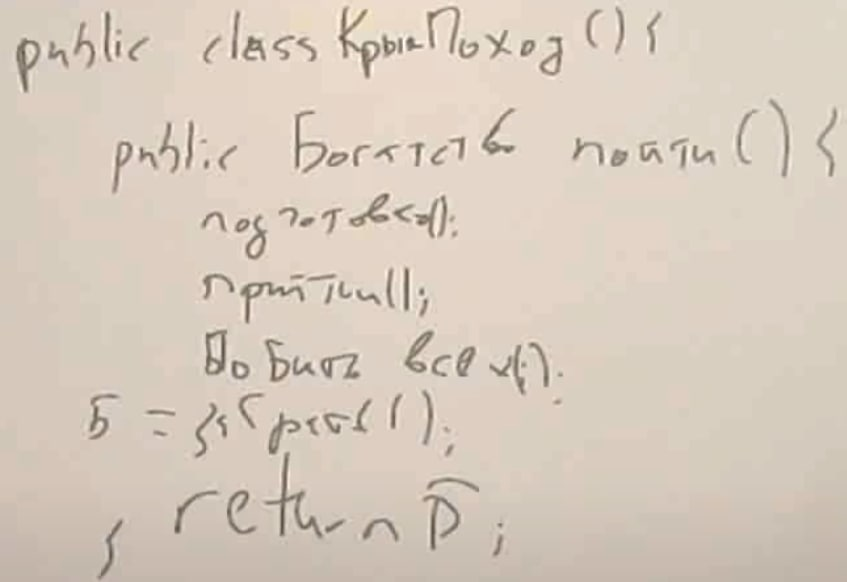 public class КрымПоход () {
public Богатств пойти () {
подготовка();
прийти();
Побить всех();
Б = забрать();
} return Б;